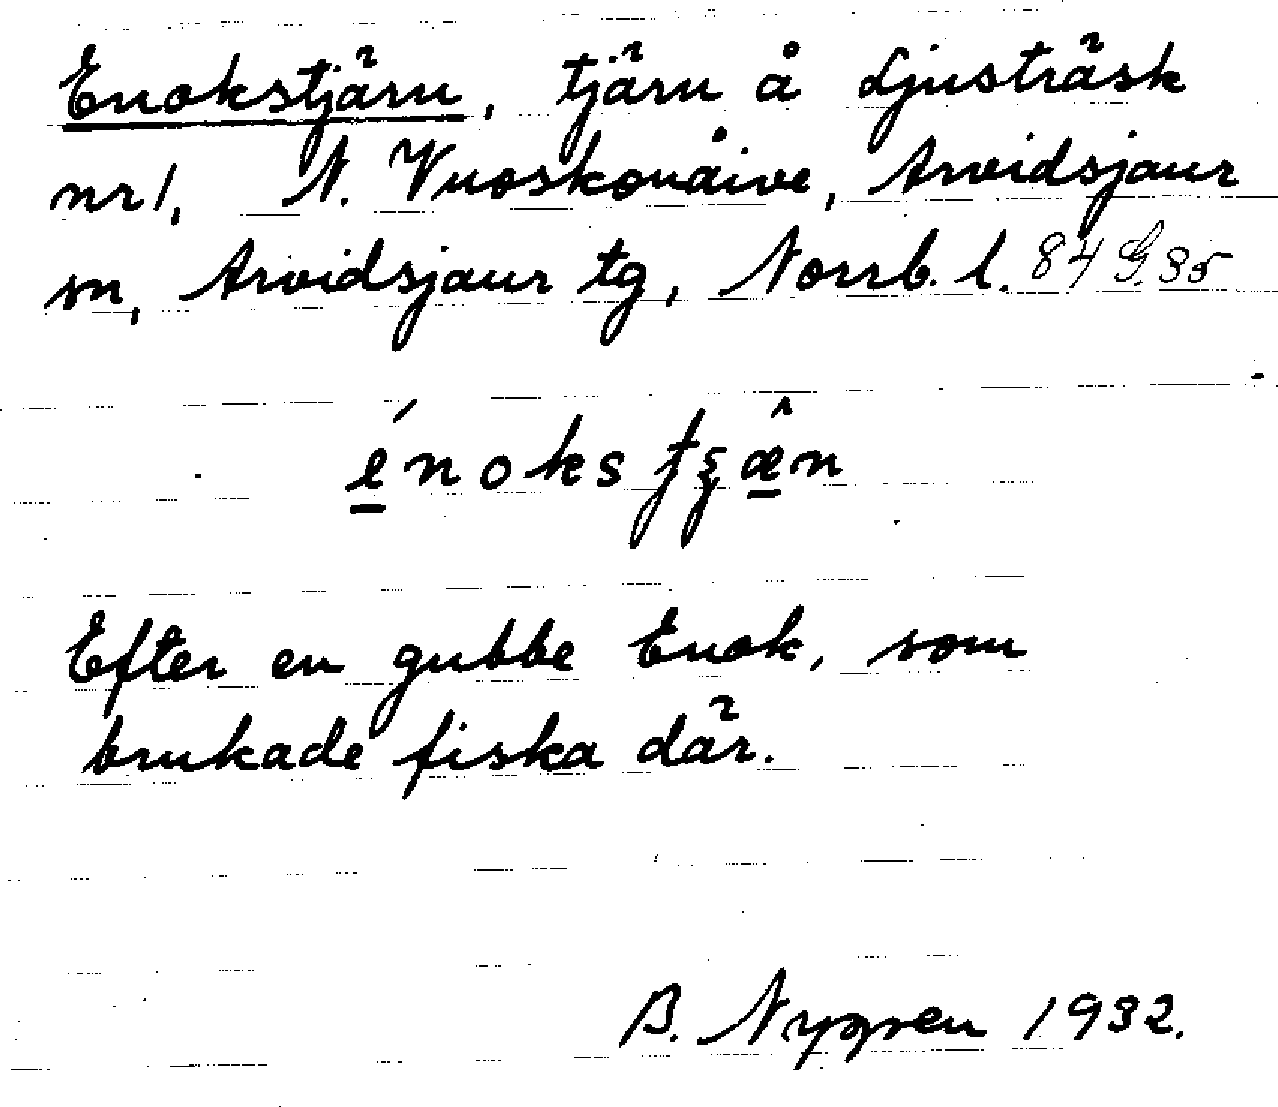 Enokstjärn, tjärn å Ljusträsk
nr 1, N. Vuoskonåive, Arvidsjaur
sn, Arvidsjaur tg, Norrb. l. 84 G. 35
Efter en gubbe Enok, som
brukade fiska där.
B. Nygren 1932.